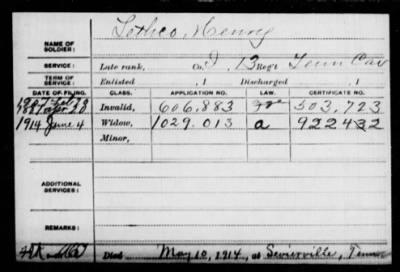 Lothco, Henry
NAME OF SOLDIER:
SERVICE: Late rank, Co. I, 13 Reg't Tenn Cav
TERM OF SERVICE: Enlisted , 1 Discharged , 1
DATE OF FILING. CLASS. APPLICATION NO. LAW. CERTIFICATE NO.
Invalid, 606,883 503,723
1914 June 4 Widow, 1029.013 a 922432
Minor,
ADDITIONAL SERVICES:
REMARKS:
Died May 10, 1914, at Sevierville, Tenn